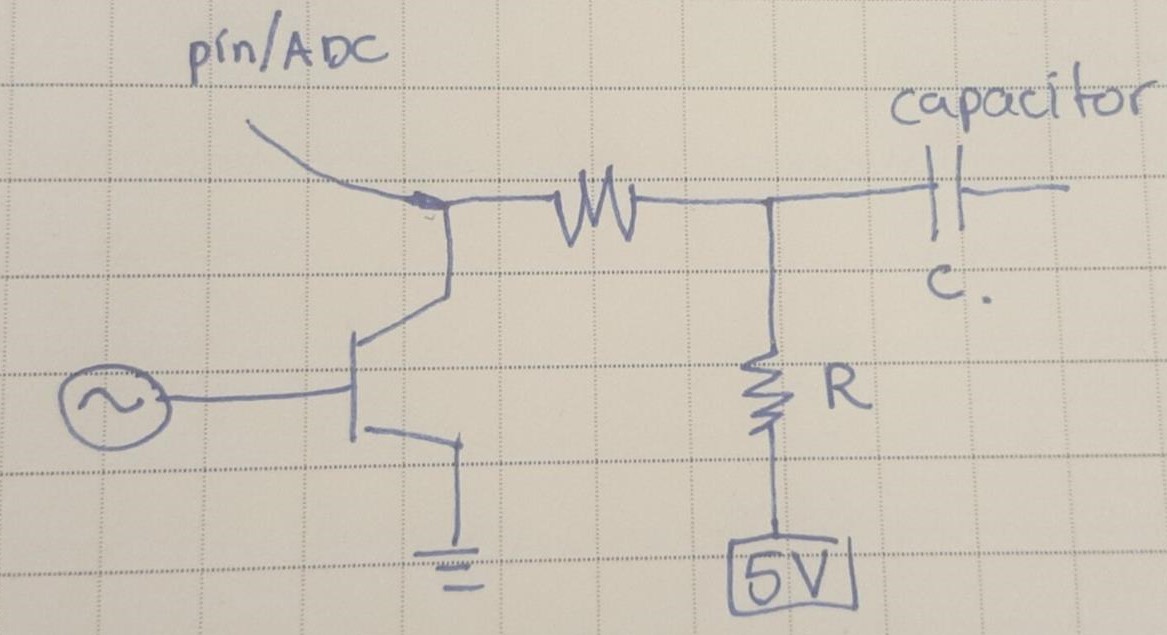 pin/ADC
capacitor
C.
R
5V